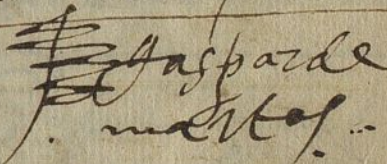 Gasparde
martos